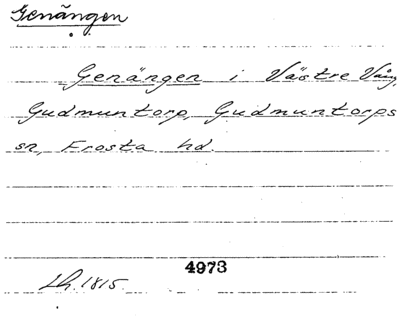 Genängen
Genängen i Västre Vång,
Gudmuntorp, Gudmuntorps
sn, Frosta hd.
4973
Lh. 1815.